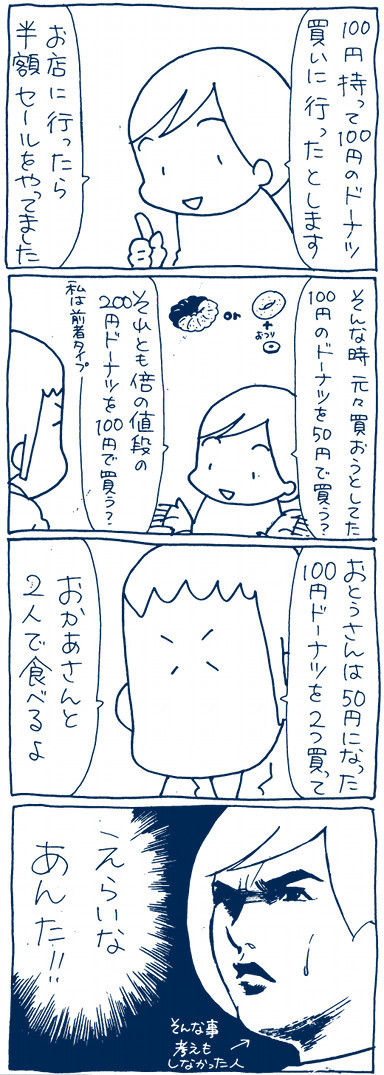 100円持って100円のドーナツ
買いに行ったとします
お店に行ったら
半額セールをやってました
そんな時元々買おうとしてた
100円のドーナツを50円で買う?
or
+
おつり
それとも倍の値段の
200円ドーナツを100円で買う?
私は前者タイプ
おとうさんは50円になった
100円ドーナツを2つ買って
おかあさんと
2人で食べるよ
えらいな
あんた!!
そんな事
考えも
しなかった人